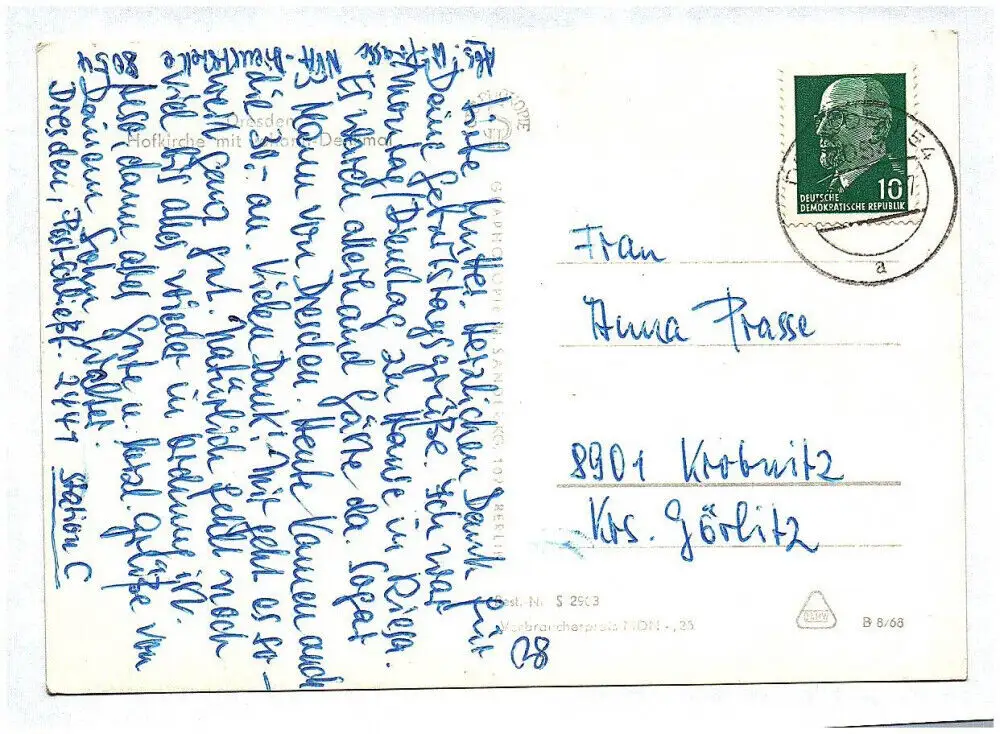 Abs: W. Prasse NVA-Dienststelle
8054 Dresden, Post-Schließf. 2441 Station C
Liebe Mutter! Herzlichen Dank für
Deine Geburtstagsgrüße. Ich war
Montag/Dienstag zu Hause in Riesa.
Es waren allerhand Gäste da. Sogar
3 Mann von Dresden. Heute kamen auch
die 50,- an. Vielen Dank! Mir geht es so-
weit ganz gut. Natürlich fehlt noch
viel bis alles wieder in Ordnung ist.
Also dann alles Gute u. herzl. Grüße von
Deinem Sohn Walter.
Dresden
Hofkirche mit Denkmal
DEUTSCHE
DEMOKRATISCHE REPUBLIK
10
a
Frau
Anna Prasse
8901 Krobnitz
Krs. Görlitz
Best. Nr. S 2903
Verbraucherpreis MDN -,25
B 8/68
28